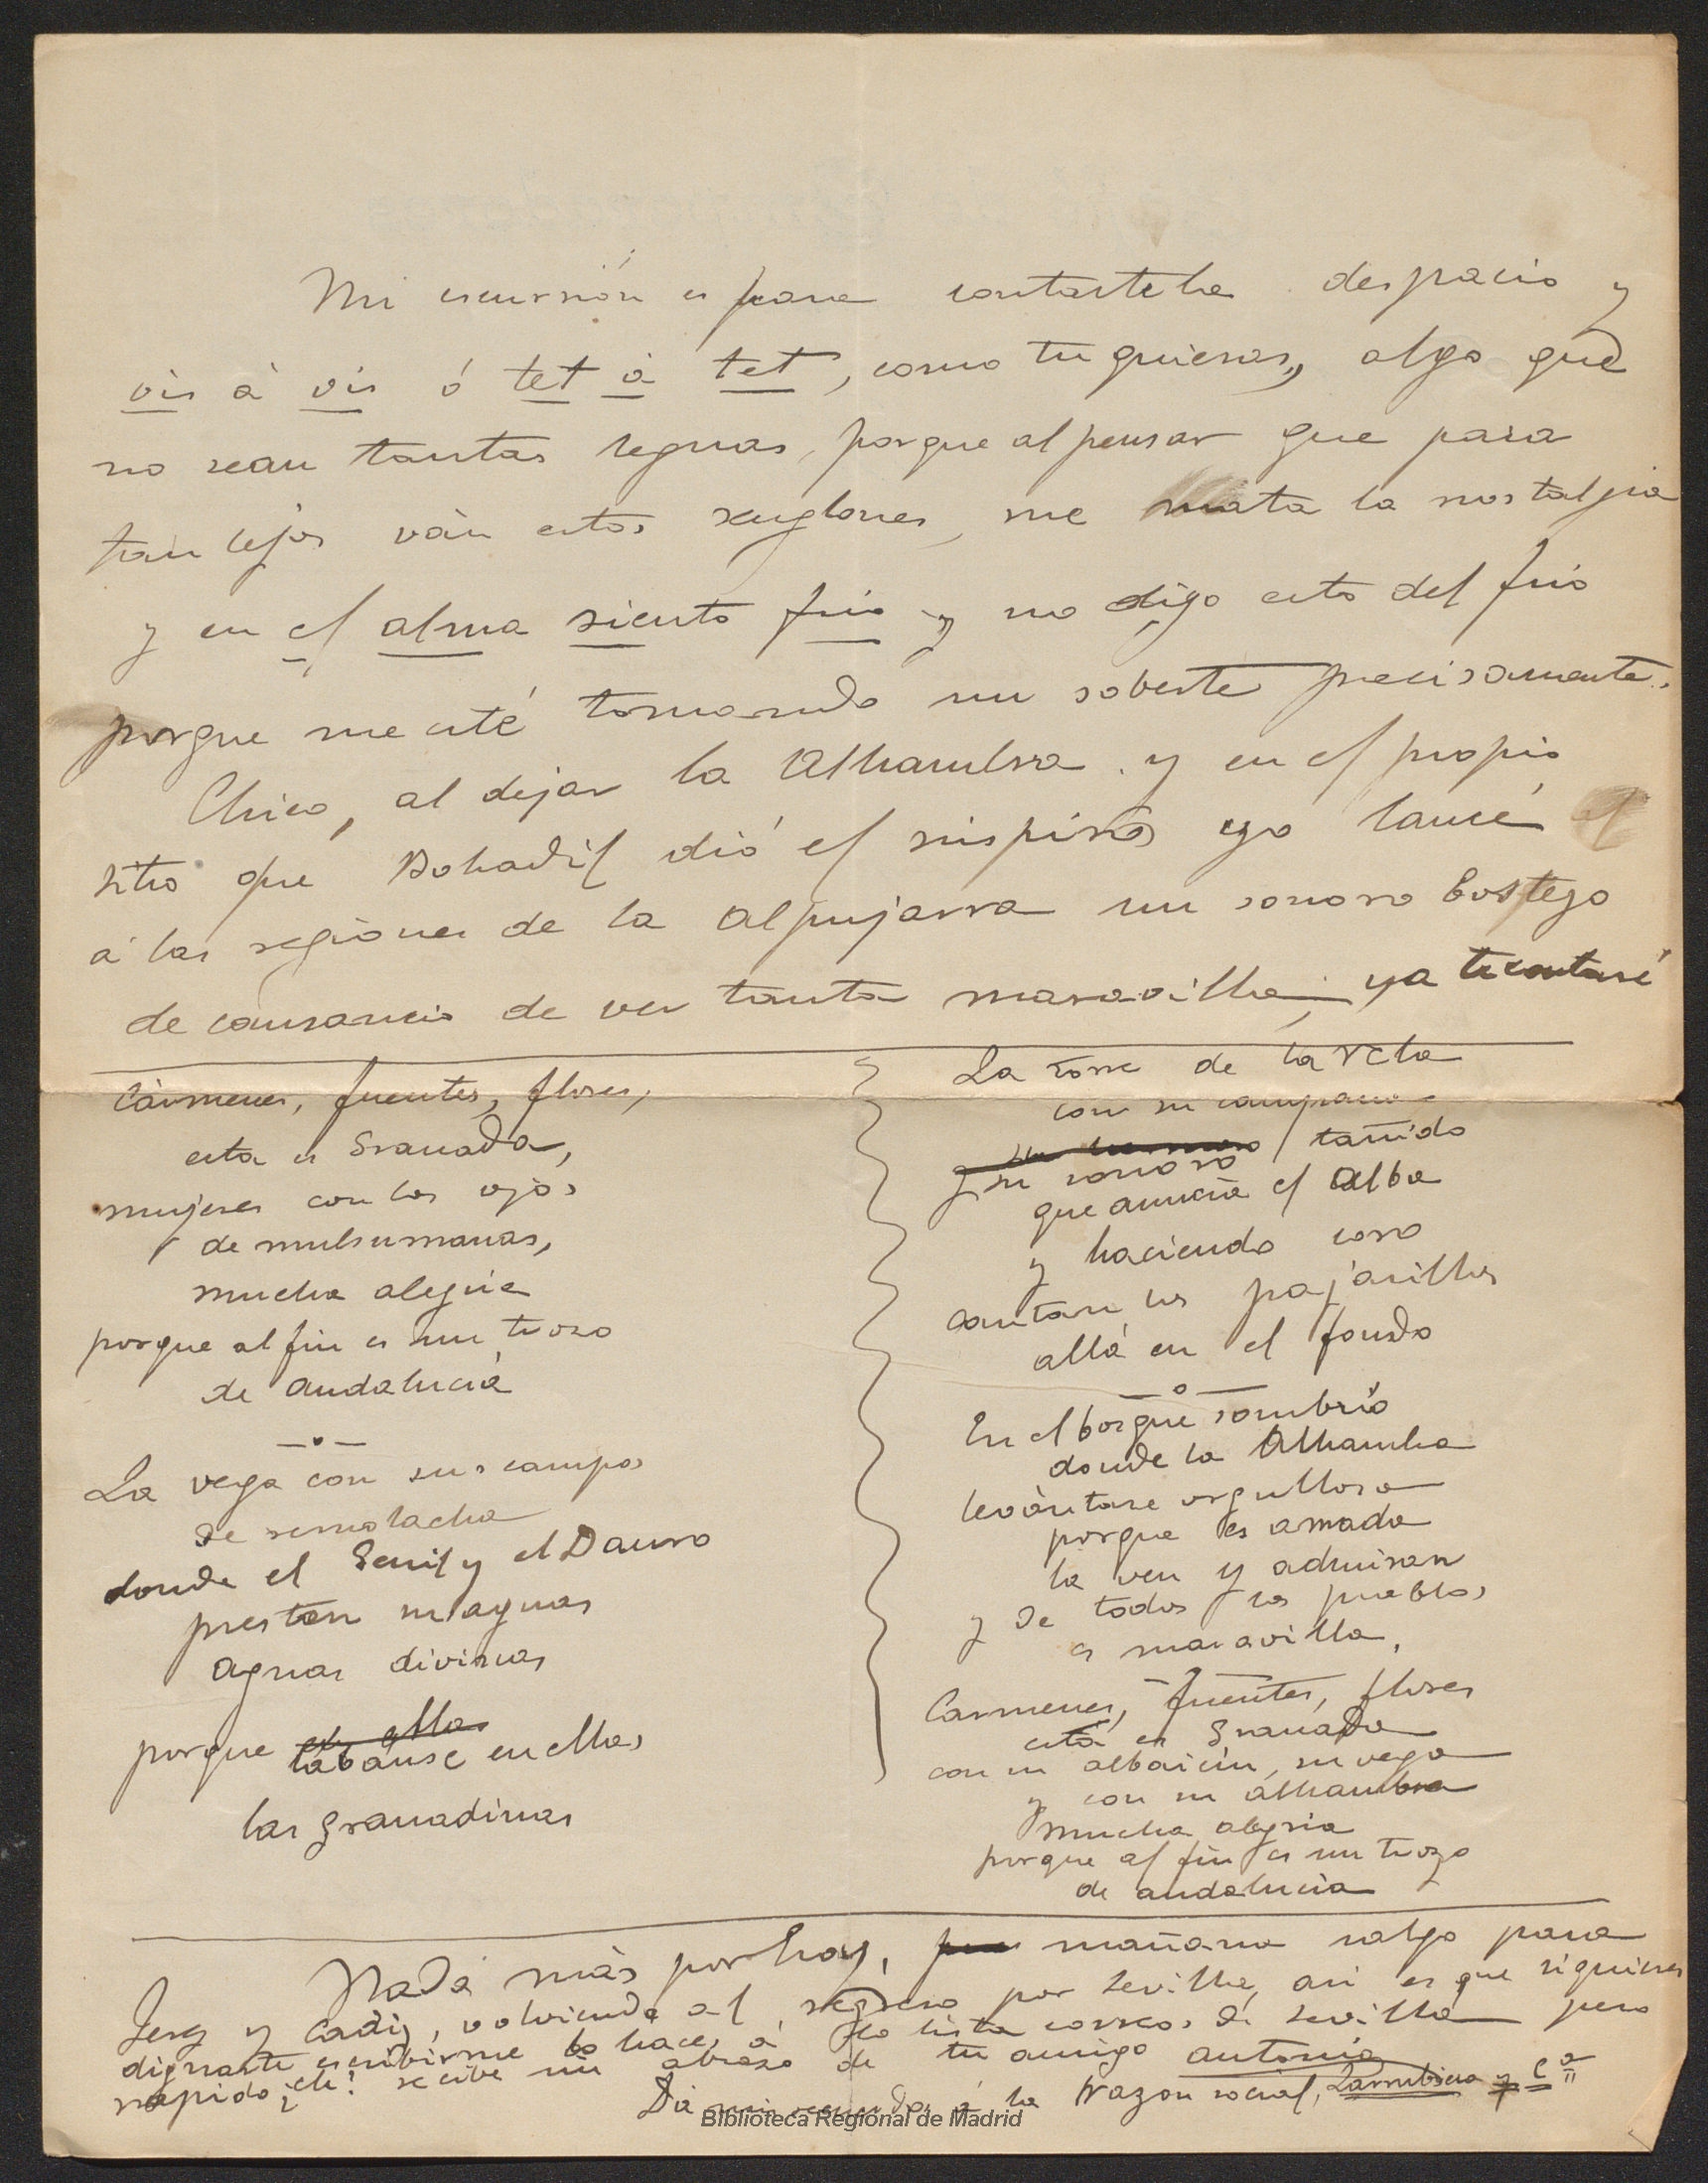 Mi escursión es para contartela despacio y
vis à vis ó tet à tet, como tu quieras, algo que
no sean tantas leguas, porque al pensar que para
tan lejos ván estos renglones, me mata la nostalgia
y en el alma siento frio y no digo esto del frio
porque me esté tomando un sobeste precisamente.
Chico, al dejar la Alhambra y en el propio
sitio que Bohadil dió el suspiro, yo lancé
á las regiones de la Alpujarra un sonoro bostezo
de cansancio de ver tanta maravilla; ya te contaré
Cármenes, fuentes, flores,
esta es Granada,
mujeres con los ojos
de mulsumanas,
mucha alegria
porque al fin es un trozo
de Andalucia
—o—
La vega con sus campos
de remolacha
donde el Genil y el Dauro
prestan su aguas
aguas divinas
porque en ellas
lábanse en ellas
las granadinas
La torre de la Vela
con su campana
y su sonoro tañido
que anuncia el Alba
y haciendo coro
cantan los pajarillos
allá en el fondo
—o—
En el bosque sombrío
donde la Alhambra
levántase orgullosa
porque es amada
la ven y admiran
y de todos los pueblos
es maravilla,
Carmenes, fuentes, flores
está es Granada
con su albaicin, su vega
y con su alhambra
mucha alegria
porque al fin es un trozo
de andalucia
Nada más por hoy, mañana salgo para
Jerez y Cadiz, volviendo al regreso por Sevilla, asi es que si quieres
dignarte escribirme lo haces á la lista correos de Sevilla pero
rapido ¡eh! recibe un abrazo de tu amigo Antonio
Dá mis recuerdos á la razon social, Larrubiera y Cª
Biblioteca Regional de Madrid